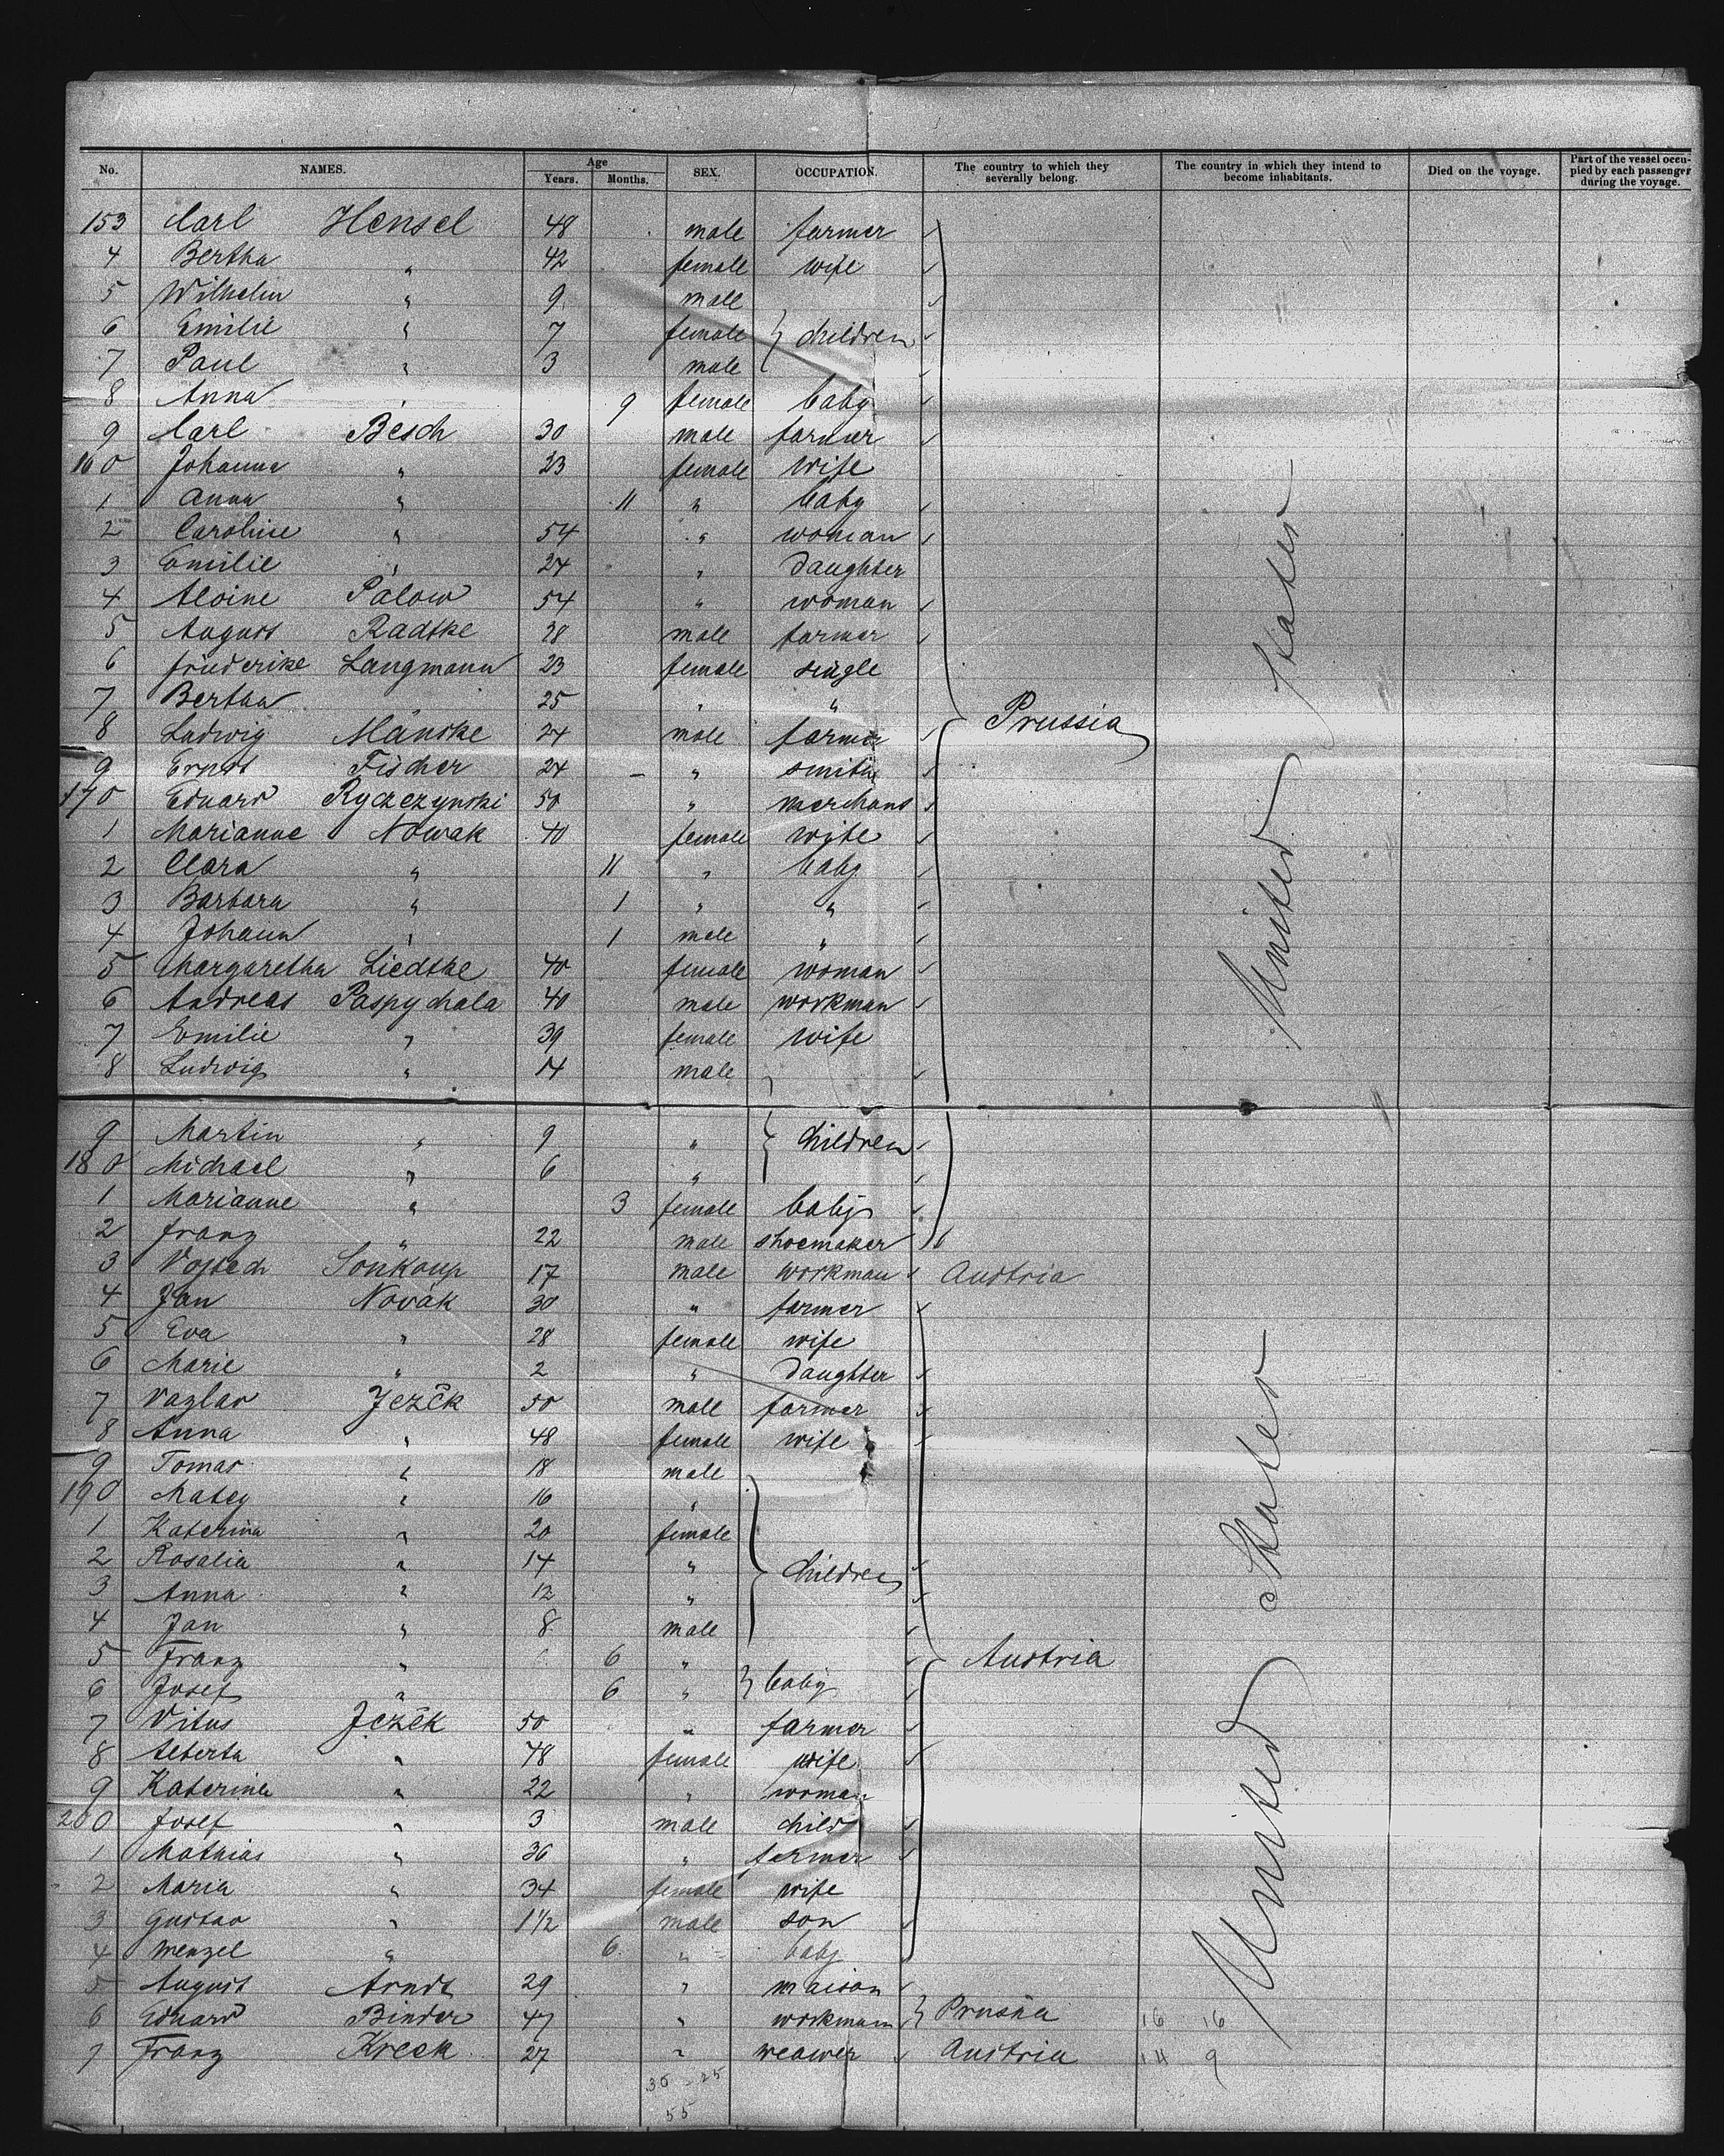 No. NAMES. Age Years. Months. SEX. OCCUPATION. The country to which they severally belong. The country in which they intend to become inhabitants. Died on the voyage. Part of the vessel occupied by each passenger during the voyage.
153 Carl Hensel 48 male farmer
4 Bertha " 42 female wife
5 Wilhelm " 9 male
6 Emilie " 7 female } children
7 Paul " 3 male
8 Anna " 9 female baby
9 Carl Besch 30 male farmer
160 Johanna " 23 female wife
1 Anna " 11 " baby
2 Caroline " 54 " woman
3 Emilie " 24 " daughter
4 Alvine Palow 54 " woman
5 August Radtke 28 male farmer
6 Friederike Langmann 23 female single
7 Bertha 25 " "
Prussia
8 Ludwig Mänske 24 male farmer
9 Ernst Fischer 24 " smith
170 Eduard Ryczezynski 50 " merchant
1 Marianne Nowak 40 female wife
United States
2 Clara " 11 " baby
3 Barbara " 1 " "
4 Johann " 1 male "
5 Margaretha Liedtke 40 female woman
6 Andreas Paspychala 40 male workman
7 Emilie " 39 female wife
8 Ludwig " 14 male
9 Martin " 9 " } children
180 Michael " 6 "
1 Marianne " 3 female baby
2 Franz " 22 male shoemaker
3 Vojtech Soukoup 17 male workman Austria
4 Jan Novak 30 " farmer
5 Eva " 28 female wife
6 Marie " 2 " daughter
7 Vazlav Jezěk 50 male farmer
8 Anna " 48 female wife
9 Tomas " 18 male
190 Matey " 16 "
1 Katerina " 20 female
2 Rosalia " 14 " } children
3 Anna " 12 "
4 Jan " 8 male
5 Franz " 6 " Austria
6 Josef " 6 " } baby
7 Vitus Jezěk 50 " farmer
United States
8 Alberta " 48 female wife
9 Katerina " 22 " woman
200 Josef " 3 male child
1 Mathias " 36 " farmer
2 Maria " 34 female wife
3 Gustav " 1 1/2 male son
4 Wenzel " 6 " baby
5 August Arndt 29 " maison
6 Eduard Binder 47 " workmann } Prussia 16 16
7 Franz Kreck 27 " weawer Austria 14 9
30 - 25
55